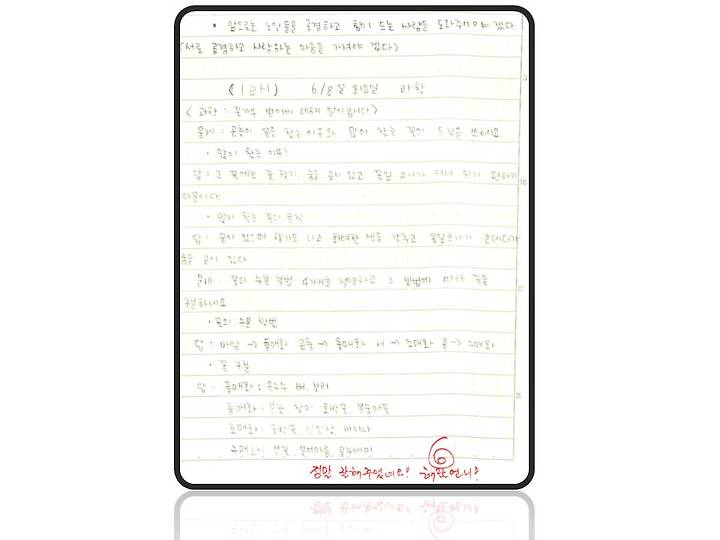 • 앞으로는 노인들을 공경하고 힘이 드는 사람을 도와주어야 겠다.
(서로 공경하고 사랑하는 마음을 가져야 겠다)
(1교시) 6/8일 화요일 과학
< 과학 : 꽃가루 받이에 대해 알아봅시다 >
문제 : 곤충이 꽃을 찾는 이유와 많이 찾는 꽃의 특징을 쓰세요
• 많이 찾는 이유?
답 : 그 꽃에는 꿀 향기, 숨을 곳이 있고 꽃잎 크기가 커서 쉬기 편하기
때문이다.
• 많이 찾는 꽃의 특징
답 : 꿀이 있으며 향기도 나고 화려한 색을 갖추고 꽃잎크기가 큰데다가
숨을 곳이 있다
문제 : 꽃의 수분 방법 4가지를 설명하고 그 방법에 따라 꽃을
구분하세요
• 꽃의 수분 방법
답 : 바람 → 풍매화 곤충 → 충매화 새 → 조매화 물 → 수매화
• 꽃 구분
답 : 풍매화 : 옥수수 벼, 보리
충매화 : 장미 호박꽃, 봉숭아꽃
조매화 : 동백꽃, 선인장, 바나나
수매화 : 붕어마름, 물수세미
정말 잘해주었네요!